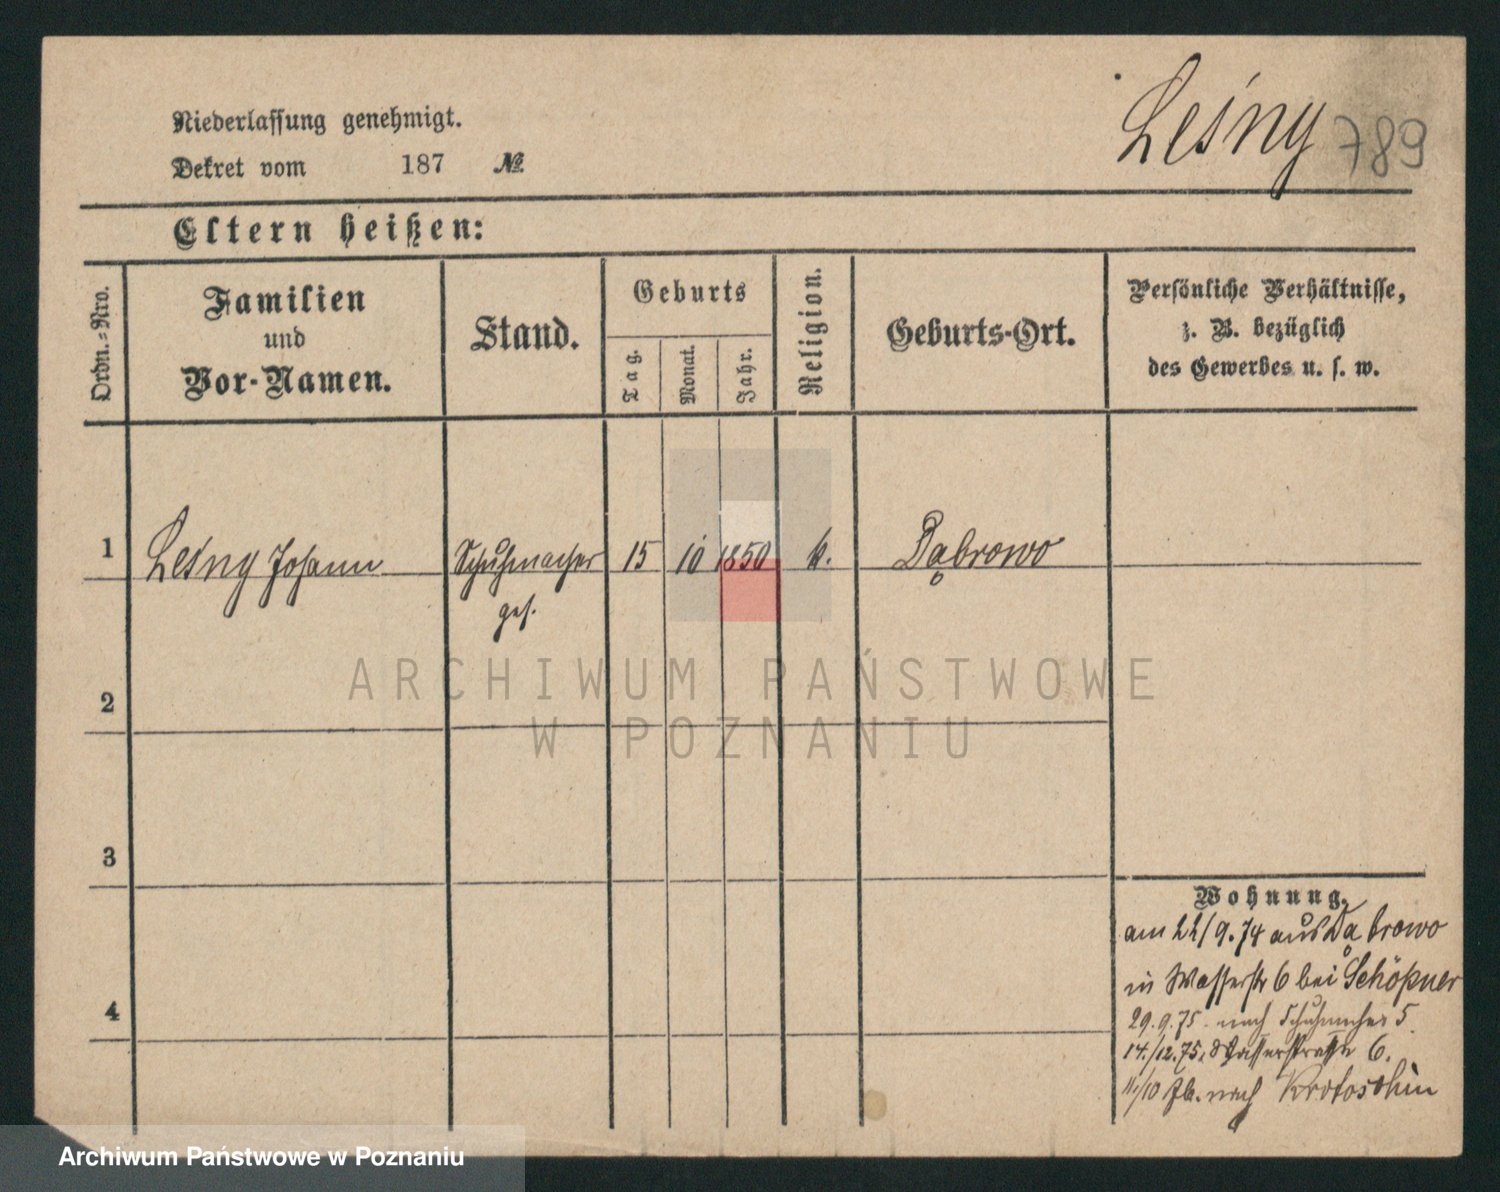 Leśny 789
Niederlassung genehmigt.
Dekret vom 187 №
Eltern heißen:
Ordn.-Nro.
Familien
und
Vor-Namen.
Stand.
Geburts
Tag.
Monat.
Jahr.
Religion.
Geburts-Ort.
Persönliche Verhältnisse,
z. B. bezüglich
des Gewerbes u. s. w.
1 Leśny Johann Schuhmacher 15 10 1850 k. Dąbrowo
ges.
2
3
4
Wohnung.
am 22/9.74 aus Dąbrowo
in Wasserstr 6 bei Schöpner
29.9.75 nach Schuhmacher 5.
14./12.75. Wasserstraße 6.
11/10 nach Krotoschin
ARCHIWUM PAŃSTWOWE
W POZNANIU
Archiwum Państwowe w Poznaniu